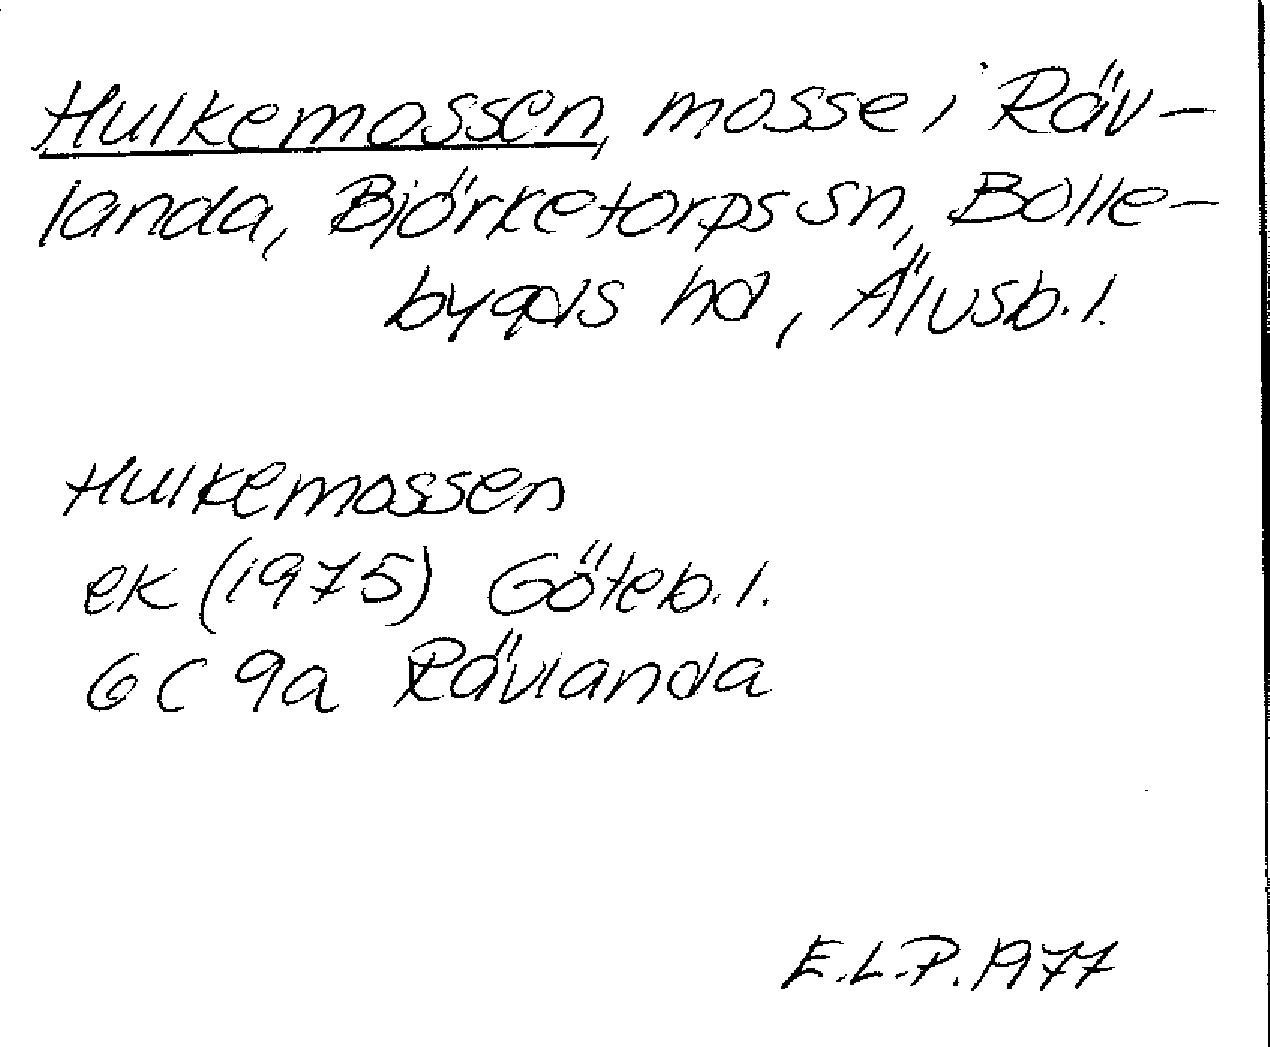 Hulkemossen, mosse i Räv-
landa, Björketorps sn, Bolle-
bygds hd, Älvsb. l.
Hulkemossen
ek (1975) Göteb. l.
6C 9a Rävlanda
E.L.P. 1977